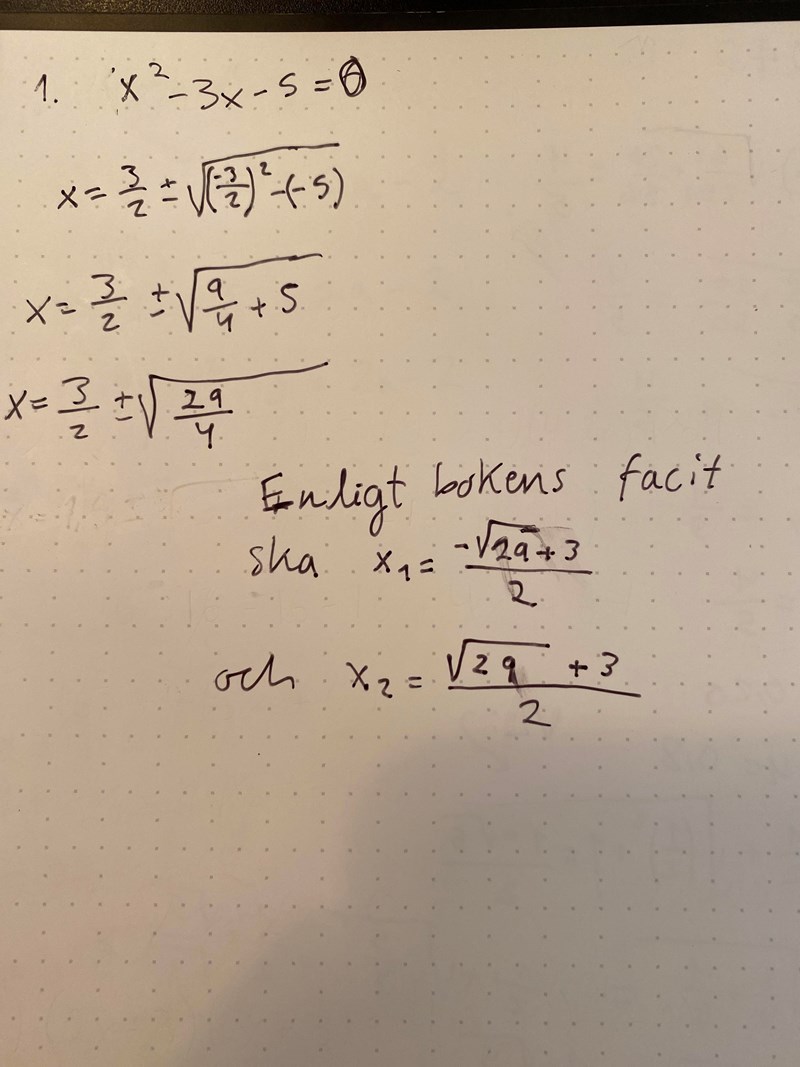 1. x² - 3x - 5 = 0
x = 3/2 ± √((-3/2)² - (-5))
x = 3/2 ± √(9/4 + 5)
x = 3/2 ± √(29/4)
Enligt bokens facit
ska x₁ = (-√29 + 3)/2
och x₂ = (√29 + 3)/2